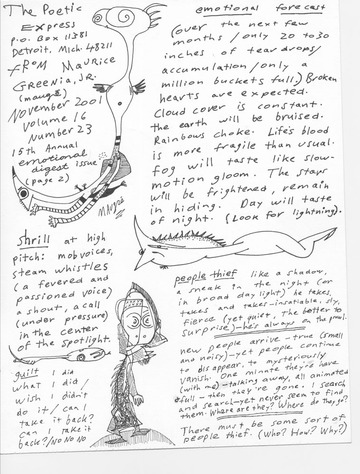 The Poetic
Express
P.O. Box 11381
Detroit, Mich. 48211
FROM Maurice
Greenia, Jr.
(maugré)
November 2001
Volume 16
Number 23
15th Annual
emotional
digest issue
(page 2)
Maugré
emotional forecast
(over the next few
months / only 20 to 30
inches of tear drops /
accumulation / only a
million buckets full) Broken
hearts are expected.
Cloud cover is constant.
the earth will be bruised.
Rainbows choke. Life's blood
is more fragile than usual.
fog will taste like slow-
motion gloom. The stars
will be frightened, remain
in hiding. Day will taste
of night. (Look for lightning).
shrill at high
pitch: mob voices,
steam whistles
(a fevered and
passioned voice)
a shout, a call
(under pressure)
in the center
of the spotlight.
guilt I did
what I did /
wish I didn't
do it / can I
take it back?
can I take it
back? / NO NO NO
people thief like a shadow,
a sneak in the night (or
in broad day light) he takes,
takes and takes-insatiable, sly,
fierce (yet quiet, the better to
surprise)-he's always on the prowl.
new people arrive - true (small
and noisy)-yet people continue
to disappear, to mysteriously
vanish. One minute they're have
(with me)-talking away, all animated
& full - then they're gone. I search
and search-yet never seem to find
them. Where are they? Where do they go?
There must be some sort of
people thief. (Who? How? Why?)